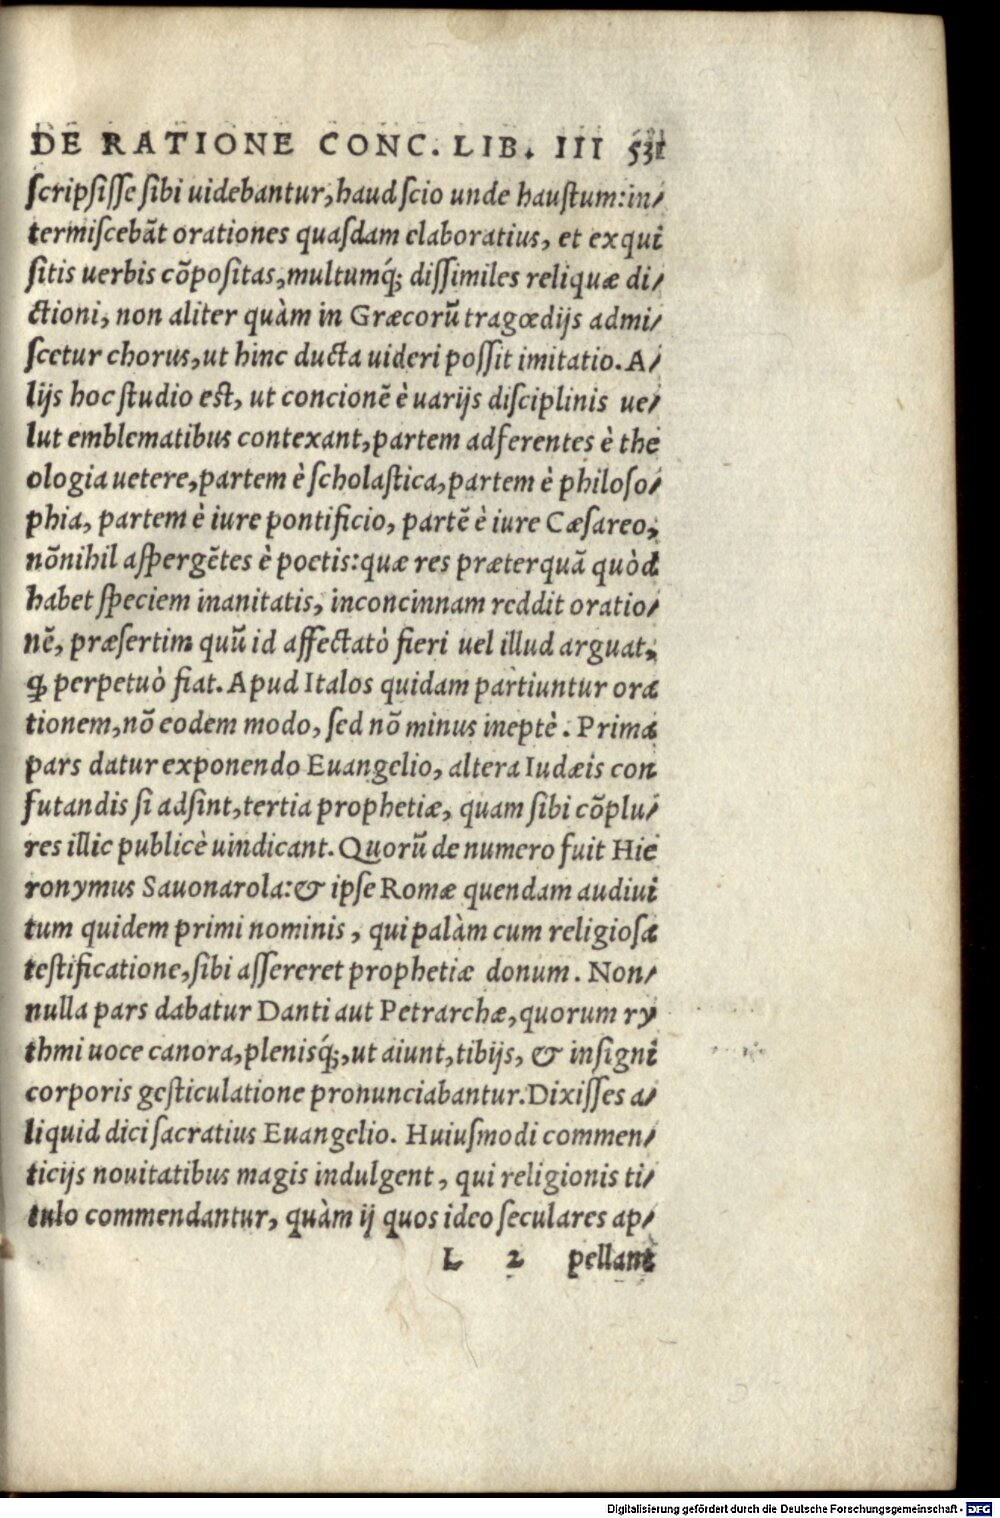 DE RATIONE CONC. LIB. III 531
scripsisse sibi uidebantur, haud scio unde haustum: in/
termiscebāt orationes quasdam elaboratius, et exqui
sitis uerbis cōpositas, multumq́; dissimiles reliquæ di/
ctioni, non aliter quàm in Græcorū tragœdijs admi/
scetur chorus, ut hinc ducta uideri possit imitatio. A/
lijs hoc studio est, ut concionē è uarijs disciplinis ue/
lut emblematibus contexant, partem adferentes è the
ologia uetere, partem è scholastica, partem è philoso/
phia, partem è iure pontificio, partē è iure Cæsareo,
nōnihil aspergētes è poetis: quæ res præterquā quòd
habet speciem inanitatis, inconcinnam reddit oratio/
nē, præsertim quū id affectatò fieri uel illud arguat,
ꝙ perpetuò fiat. Apud Italos quidam partiuntur ora
tionem, nō eodem modo, sed nō minus ineptè. Prima
pars datur exponendo Euangelio, altera Iudæis con
futandis si adsint, tertia prophetiæ, quam sibi cōplu/
res illic publicè uindicant. Quorū de numero fuit Hie
ronymus Sauonarola: & ipse Romæ quendam audiui
tum quidem primi nominis, qui palàm cum religiosa
testificatione, sibi assereret prophetiæ donum. Non/
nulla pars dabatur Danti aut Petrarchæ, quorum ry
thmi uoce canora, plenisq́;, ut aiunt, tibijs, & insigni
corporis gesticulatione pronunciabantur. Dixisses a/
liquid dici sacratius Euangelio. Huiusmodi commen/
ticijs nouitatibus magis indulgent, qui religionis ti/
tulo commendantur, quàm ij quos ideo seculares ap/
L 2 pellant
Digitalisierung gefördert durch die Deutsche Forschungsgemeinschaft - DFG